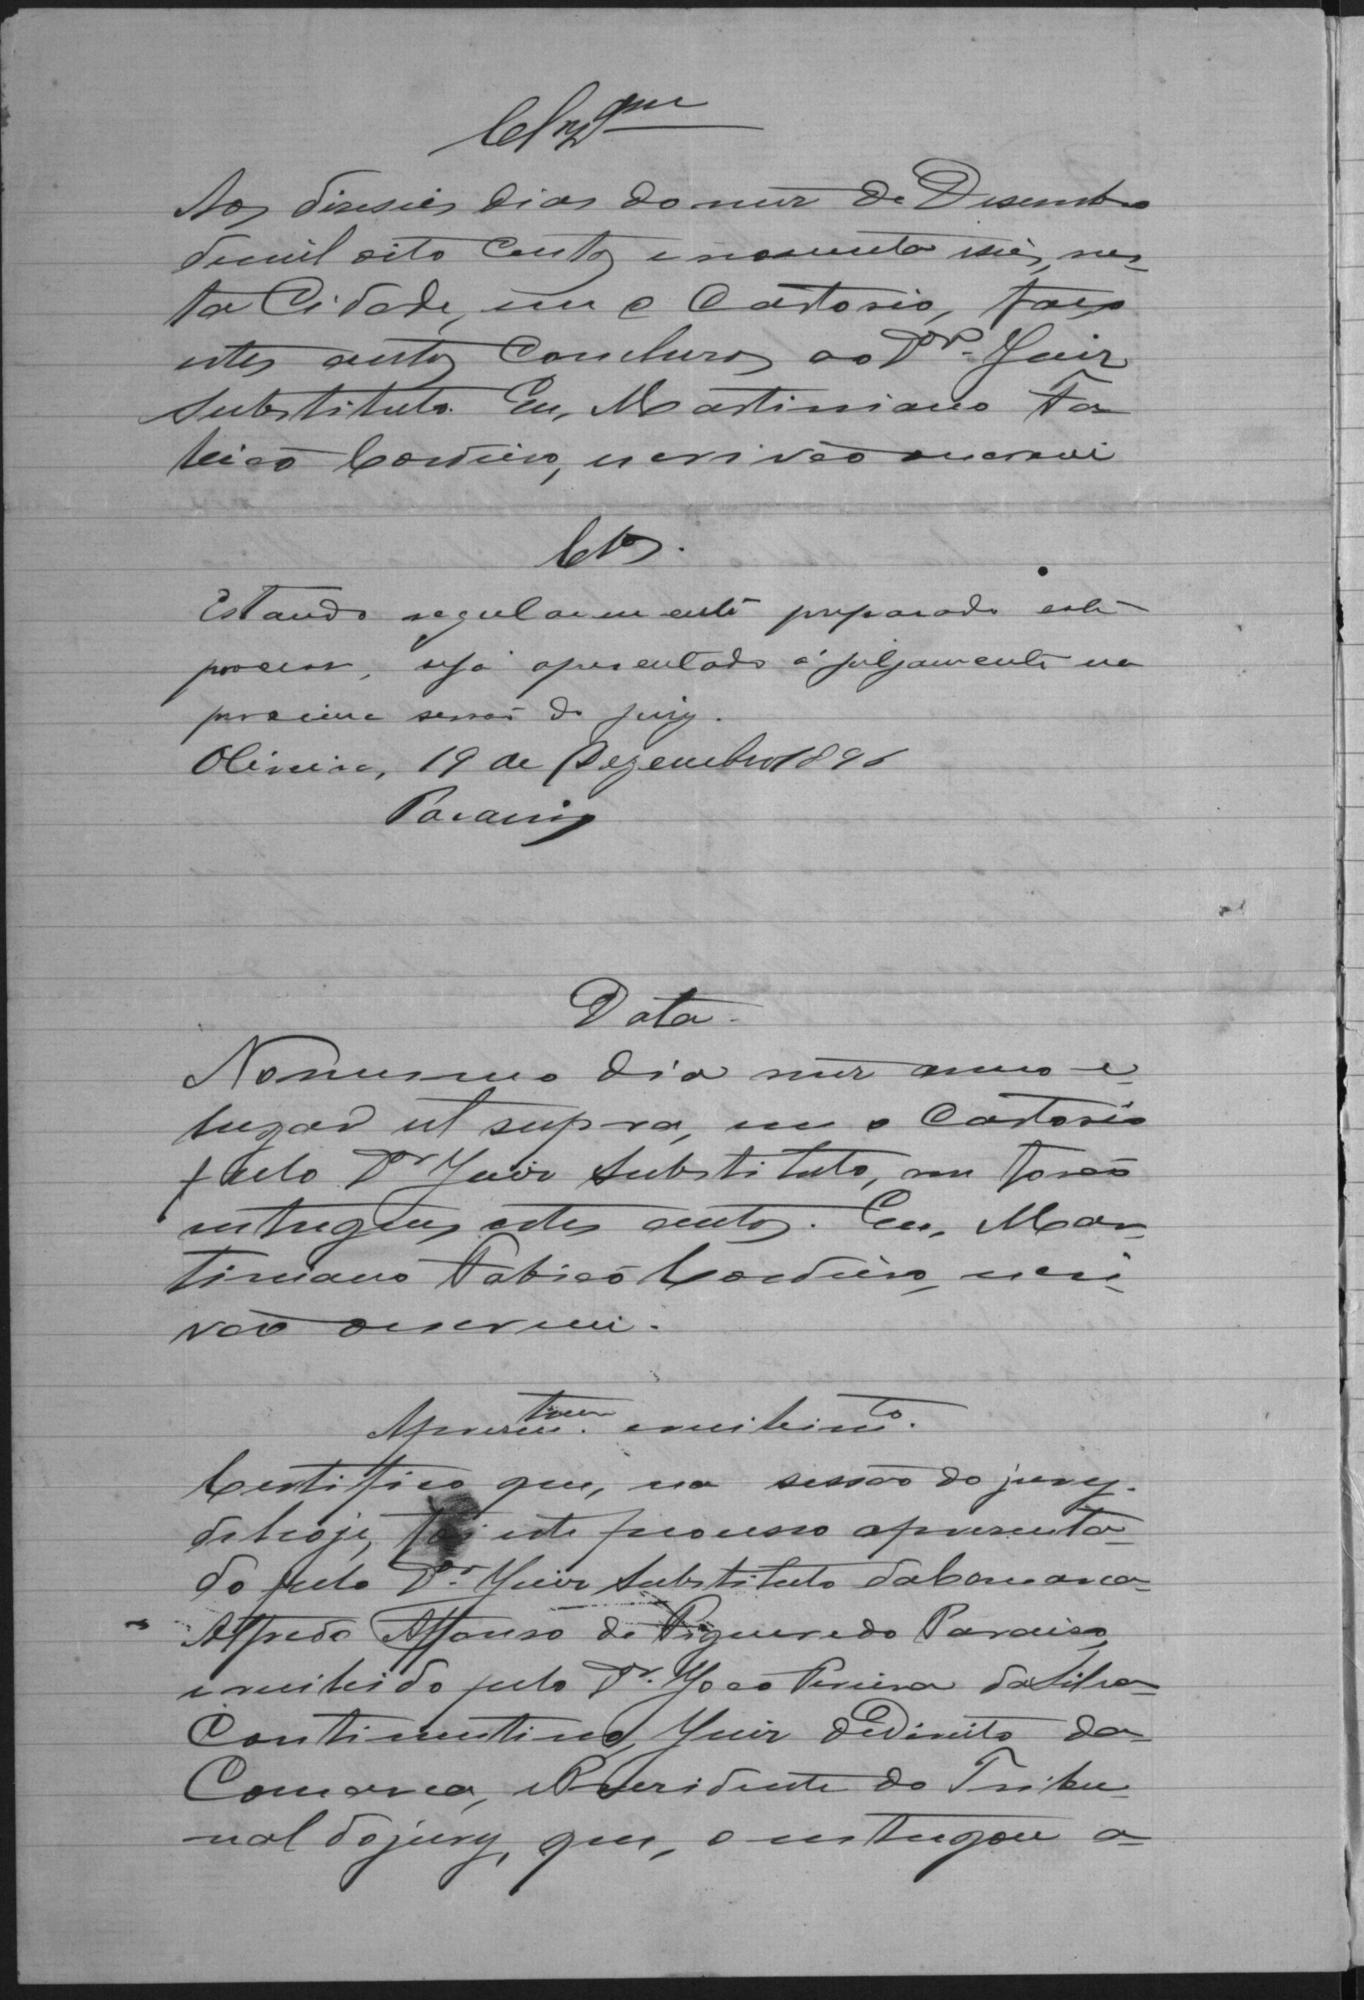 Clzam
Aos diseseis dias do mez de Desembro
de mil oito centos e noventa e seis, nes-
ta Cidade, em o Cartorio, faço
estes autos Conclusos ao Dr. Juiz
Substituto. Eu, Martiniano Fa
bião Cordeiro, escrivão o escrevi
Clos.
Estando regularmente preparado este
processo, seja apresentado á julgamento na
proxima sessão do jury.
Oliveira, 19 de Dezembro 1896
Paraiso
Data.
No mesmo dia mez anno e
lugar ut supra, em o Cartorio
pelo Dr Juiz Substituto, me forão
entregues estes autos. Eu, Mar-
tiniano Fabião Cordeiro, escri-
vão o escrevi.
Apresentam. e recebimto.
Certifico que, na sessão do jury
de hoje, foi este processo apresenta-
do pelo Dr. Juiz Substituto da Comarca
Alfredo Affonso de Figueredo Paraiso,
e recebido pelo Dr. João Pereira da Silva
Continentino, Juiz de Direito da
Comarca, e Presidente do Tribu-
nal do jury, que, o entregou a